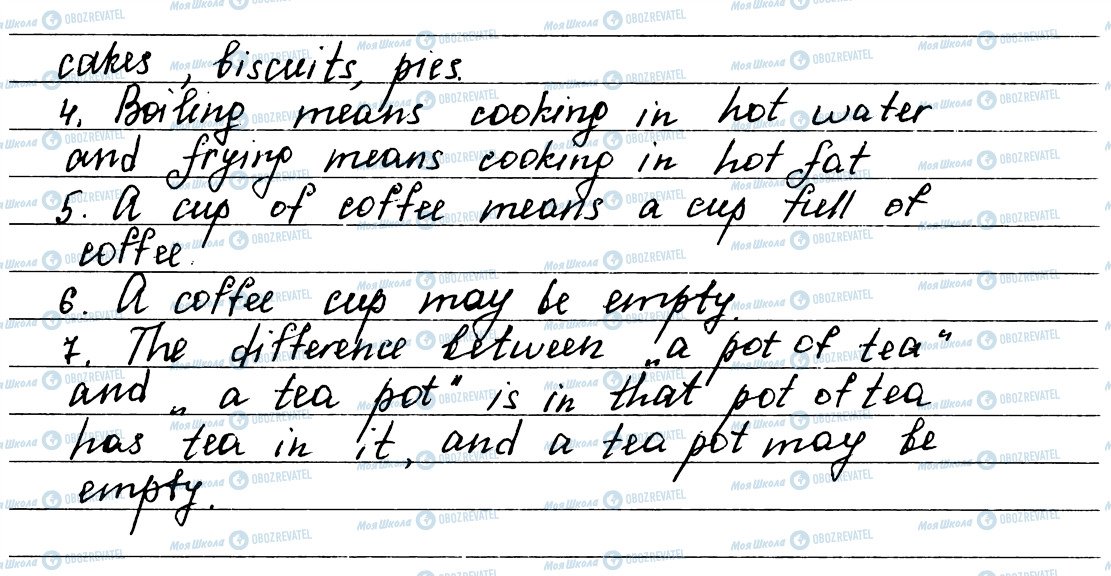 cakes, biscuits, pies.
4. Boiling means cooking in hot water
and frying means cooking in hot fat
5. A cup of coffee means a cup full of
coffee.
6. A coffee cup may be empty.
7. The difference between „a pot of tea"
and „a tea pot" is in that pot of tea
has tea in it, and a tea pot may be
empty.